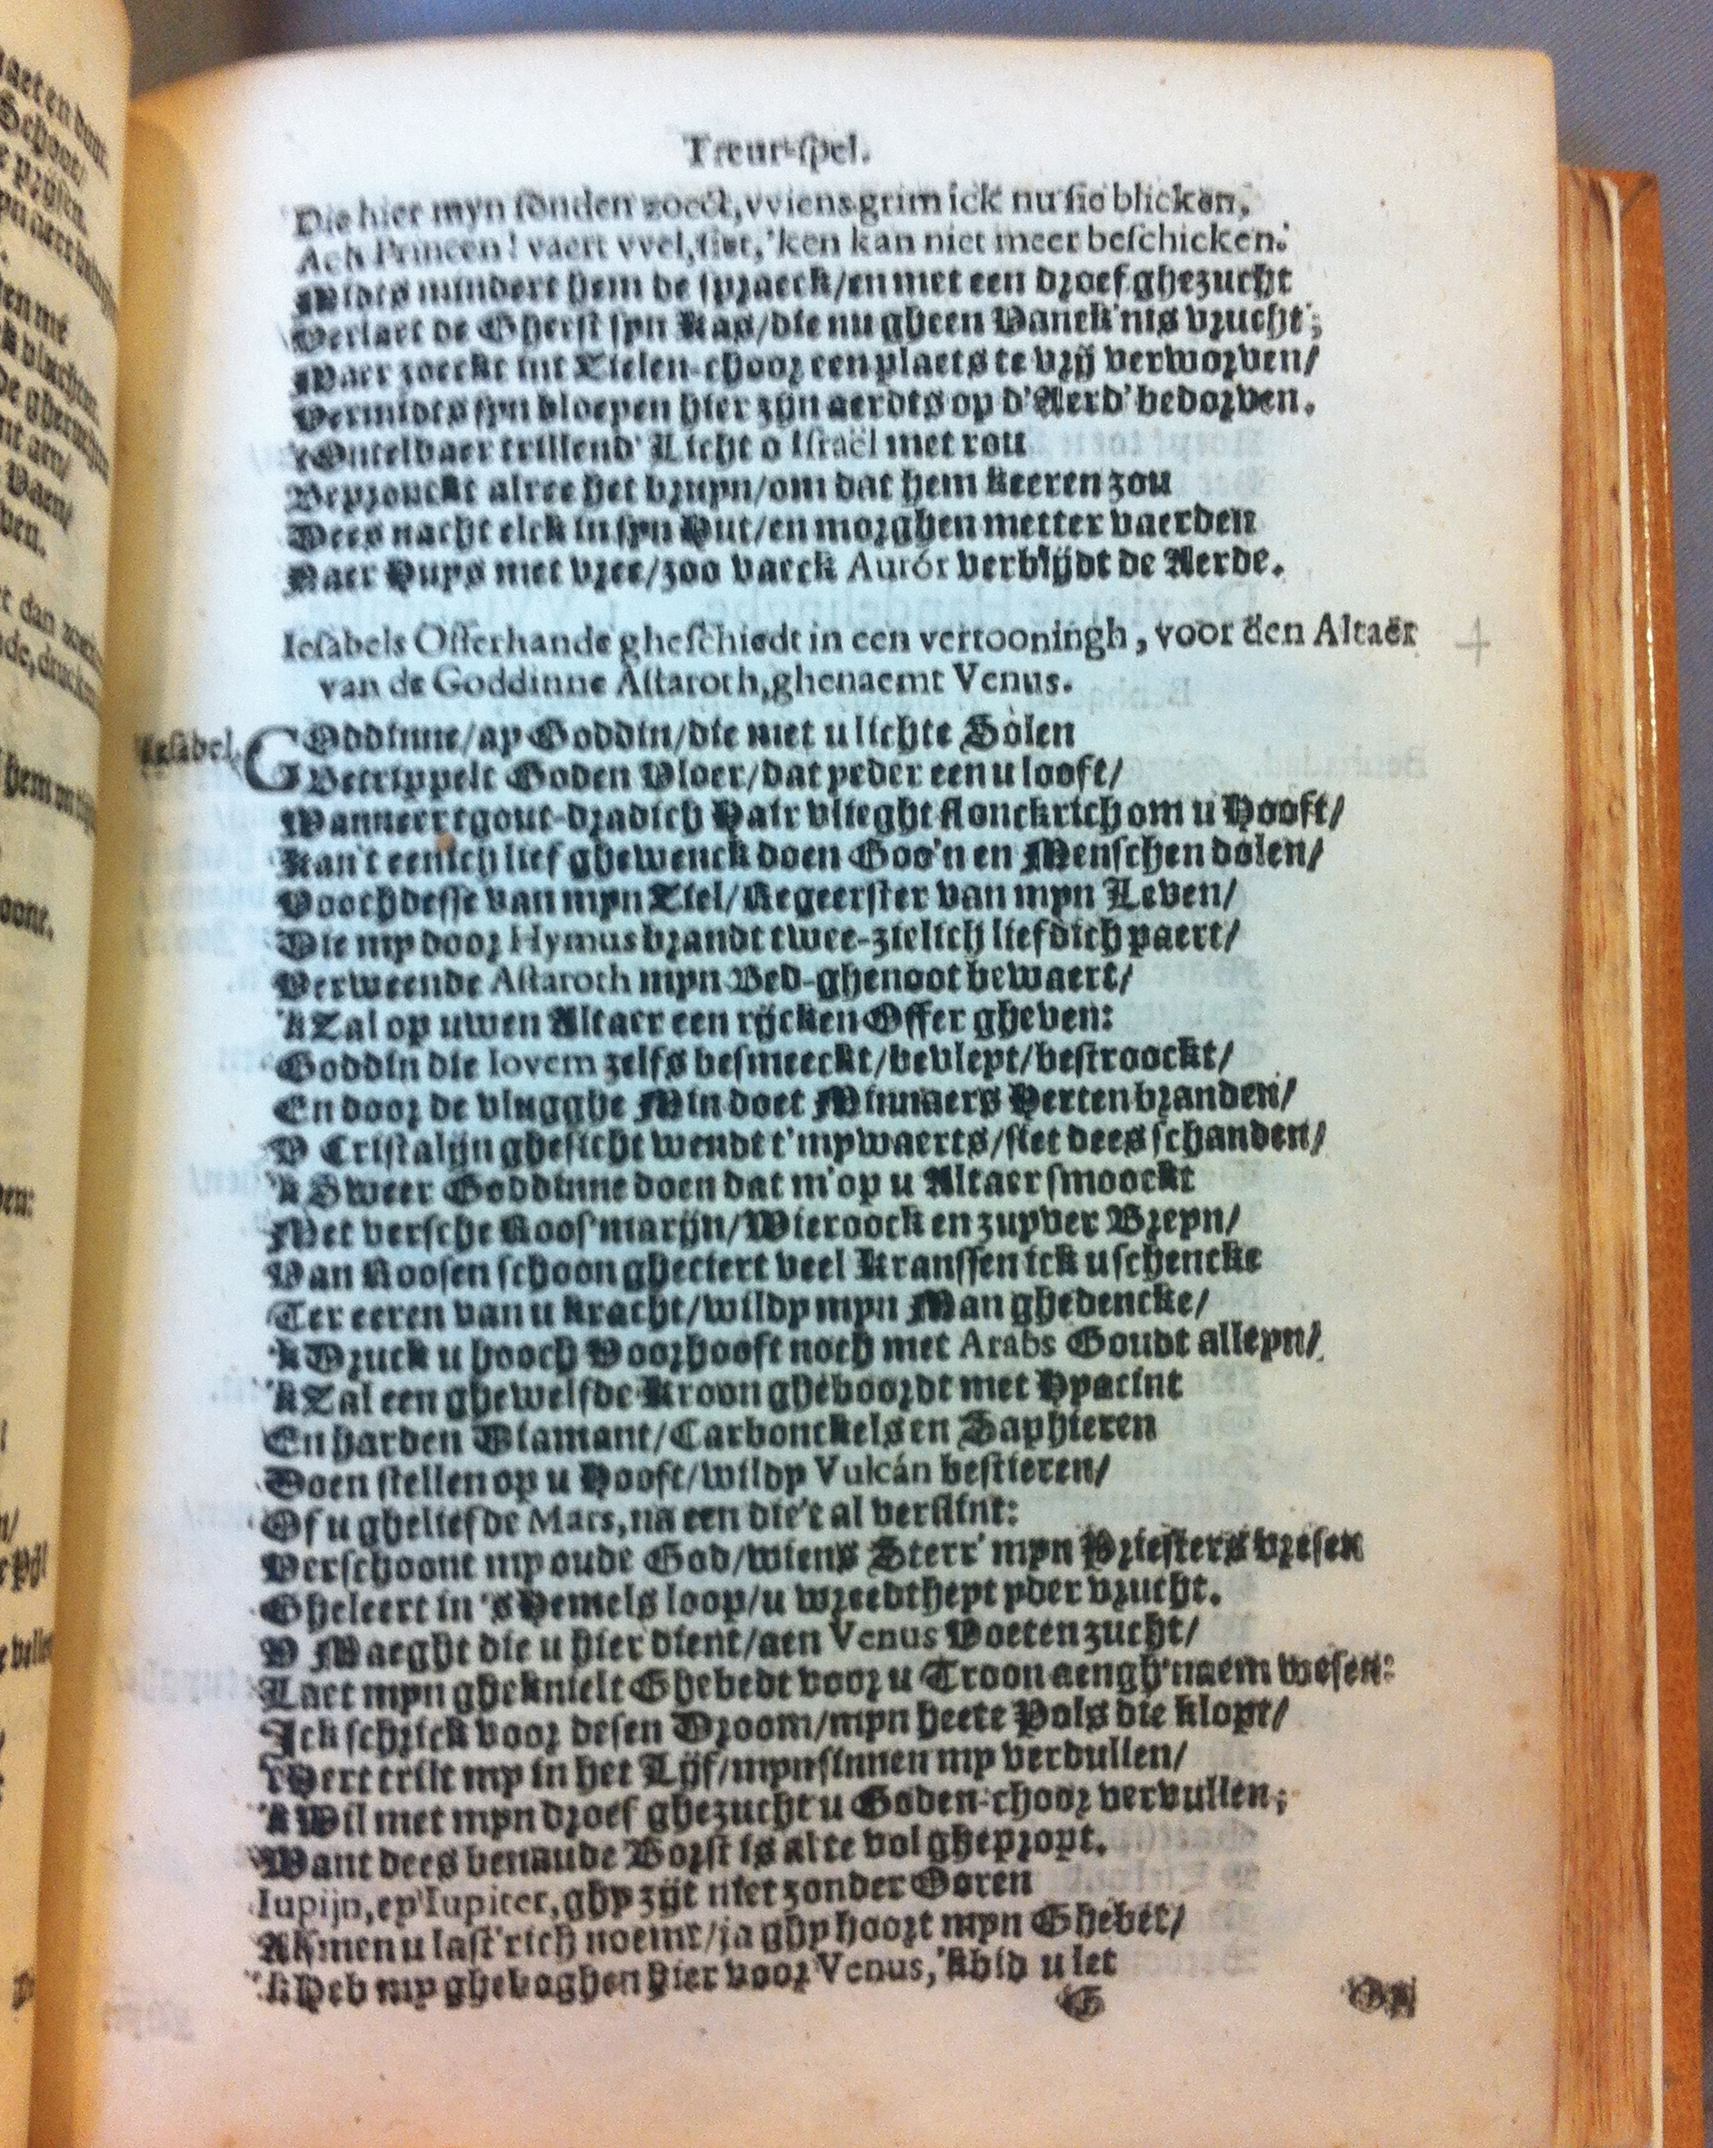 Treur-spel.
Die hier myn sonden zoect, vviens grim ick nu sie blicken,
Ach Princen! vaert vvel, siet, 'ken kan niet meer beschicken.
Midts mindert hem de spraeck/en met een droef ghezucht
Verlaet de Gheest syn Kas/die nu gheen Vanck'nis vrucht;
Maer zoeckt int Zielen-choor een plaets te vrij verworven/
Vermidts syn bloeyen hier zijn aerdts op d'Aerd' bedorven.
t'Ontelbaer trillend' Licht o Israël met rou
Beprouckt alree het bruyn/om dat hem keeren zou
Dees nacht elck in syn Hut/en morghen metter vaerden
Naer Huys met vree/zoo vaeck Aurór verblijdt de Aerde.
Iesabels Offerhande gheschiedt in een vertooningh, voor den Altaer
van de Goddinne Astaroth, ghenaemt Venus.
Iesabel. GOddinne/ay Goddin/die met u lichte Solen
Betrippelt Goden Vloer/dat yeder een u looft/
Wanneer tgout-dradich Hair vlieght flonckrich om u Hooft/
Kan't eenich lief ghewenck doen Goo'n en Menschen dolen/
Voochdesse van myn Ziel/Regeerster van myn Leven/
Die my door Hymus brandt twee-zielich liefdich paert/
Verweende Astaroth myn Bed-ghenoot bewaert/
'k Zal op uwen Altaer een rijcken Offer gheven:
Goddin die Iovem zelfs besmeeckt/bevleyt/bestroockt/
En door de vlugghe Min doet Minnaers Herten branden/
V Cristalijn ghesicht wendt t'mywaerts/siet dees schanden/
'k Sweer Goddinne doen dat m'op u Altaer smoockt
Met versche Roos'marijn/Wieroock en zuyver Breyn/
Van Roosen schoon gheciert veel Kranssen ick u schencke
Ter eeren van u kracht/wildy myn Man ghedencke/
'k Druck u hooch Voorhooft noch met Arabs Goudt alleyn/
'k Zal een ghewelfde Kroon gheboordt met Hyacint
En harden Diamant/Carbonckels en Saphieren
Doen stellen op u Hooft/wildy Vulcán bestieren/
Of u gheliefde Mars, na een die't al verslint:
Verschoont my oude God/wiens Sterr' myn Priesters vresen
Gheleert in 's Hemels loop/u wreedtheyt yder vrucht.
V Maeght die u hier dient/aen Venus Voeten zucht/
Laet myn gheknielt Ghebedt voor u Troon aengh'naem wesen:
Ick schrick voor desen Droom/myn heete Pols die klopt/
t'Hert trilt my in het Lijf/myn sinnen my verdullen/
'k Wil met myn droef ghezucht u Goden-choor vervullen;
Want dees benaude Borst is al te vol ghepropt.
Iupijn, ey Iupiter, ghy zijt niet zonder Ooren
Als men u last'rich noemt/ja ghy hoort myn Ghebet/
'k Heb my gheboghen hier voor Venus, 'k bid u let
G